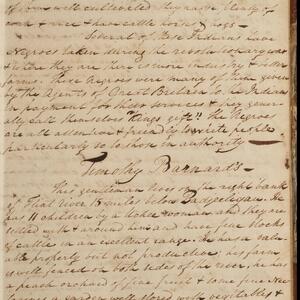 of them well cultivated they have plenty of
corn & rice & have cattle horses & hogs
Several of these Indians have
Negroes taken during the revolutionary war
& where they are there is more industry & better
farms. These Negroes were many of them given
by the Agents of Great Britain to the Indians
in payment for their services & they gener
ally call themselves "Kings gifts" the Negroes
are all attentive & friendly to white people
particularly so to those in authority
Timothy Barnard's
This gentleman lives on the right bank
of Flint river 15 miles below
has 11 children by a Uchee woman and they are
settled with & around him and have fine stocks
of cattle in an excellent range. He has a valu
able property but not productive, his farm
is well fenced on both sides of the river, he has
a peach orchard of fine fruit & some fine Nec
a garden well stored with vegetables &